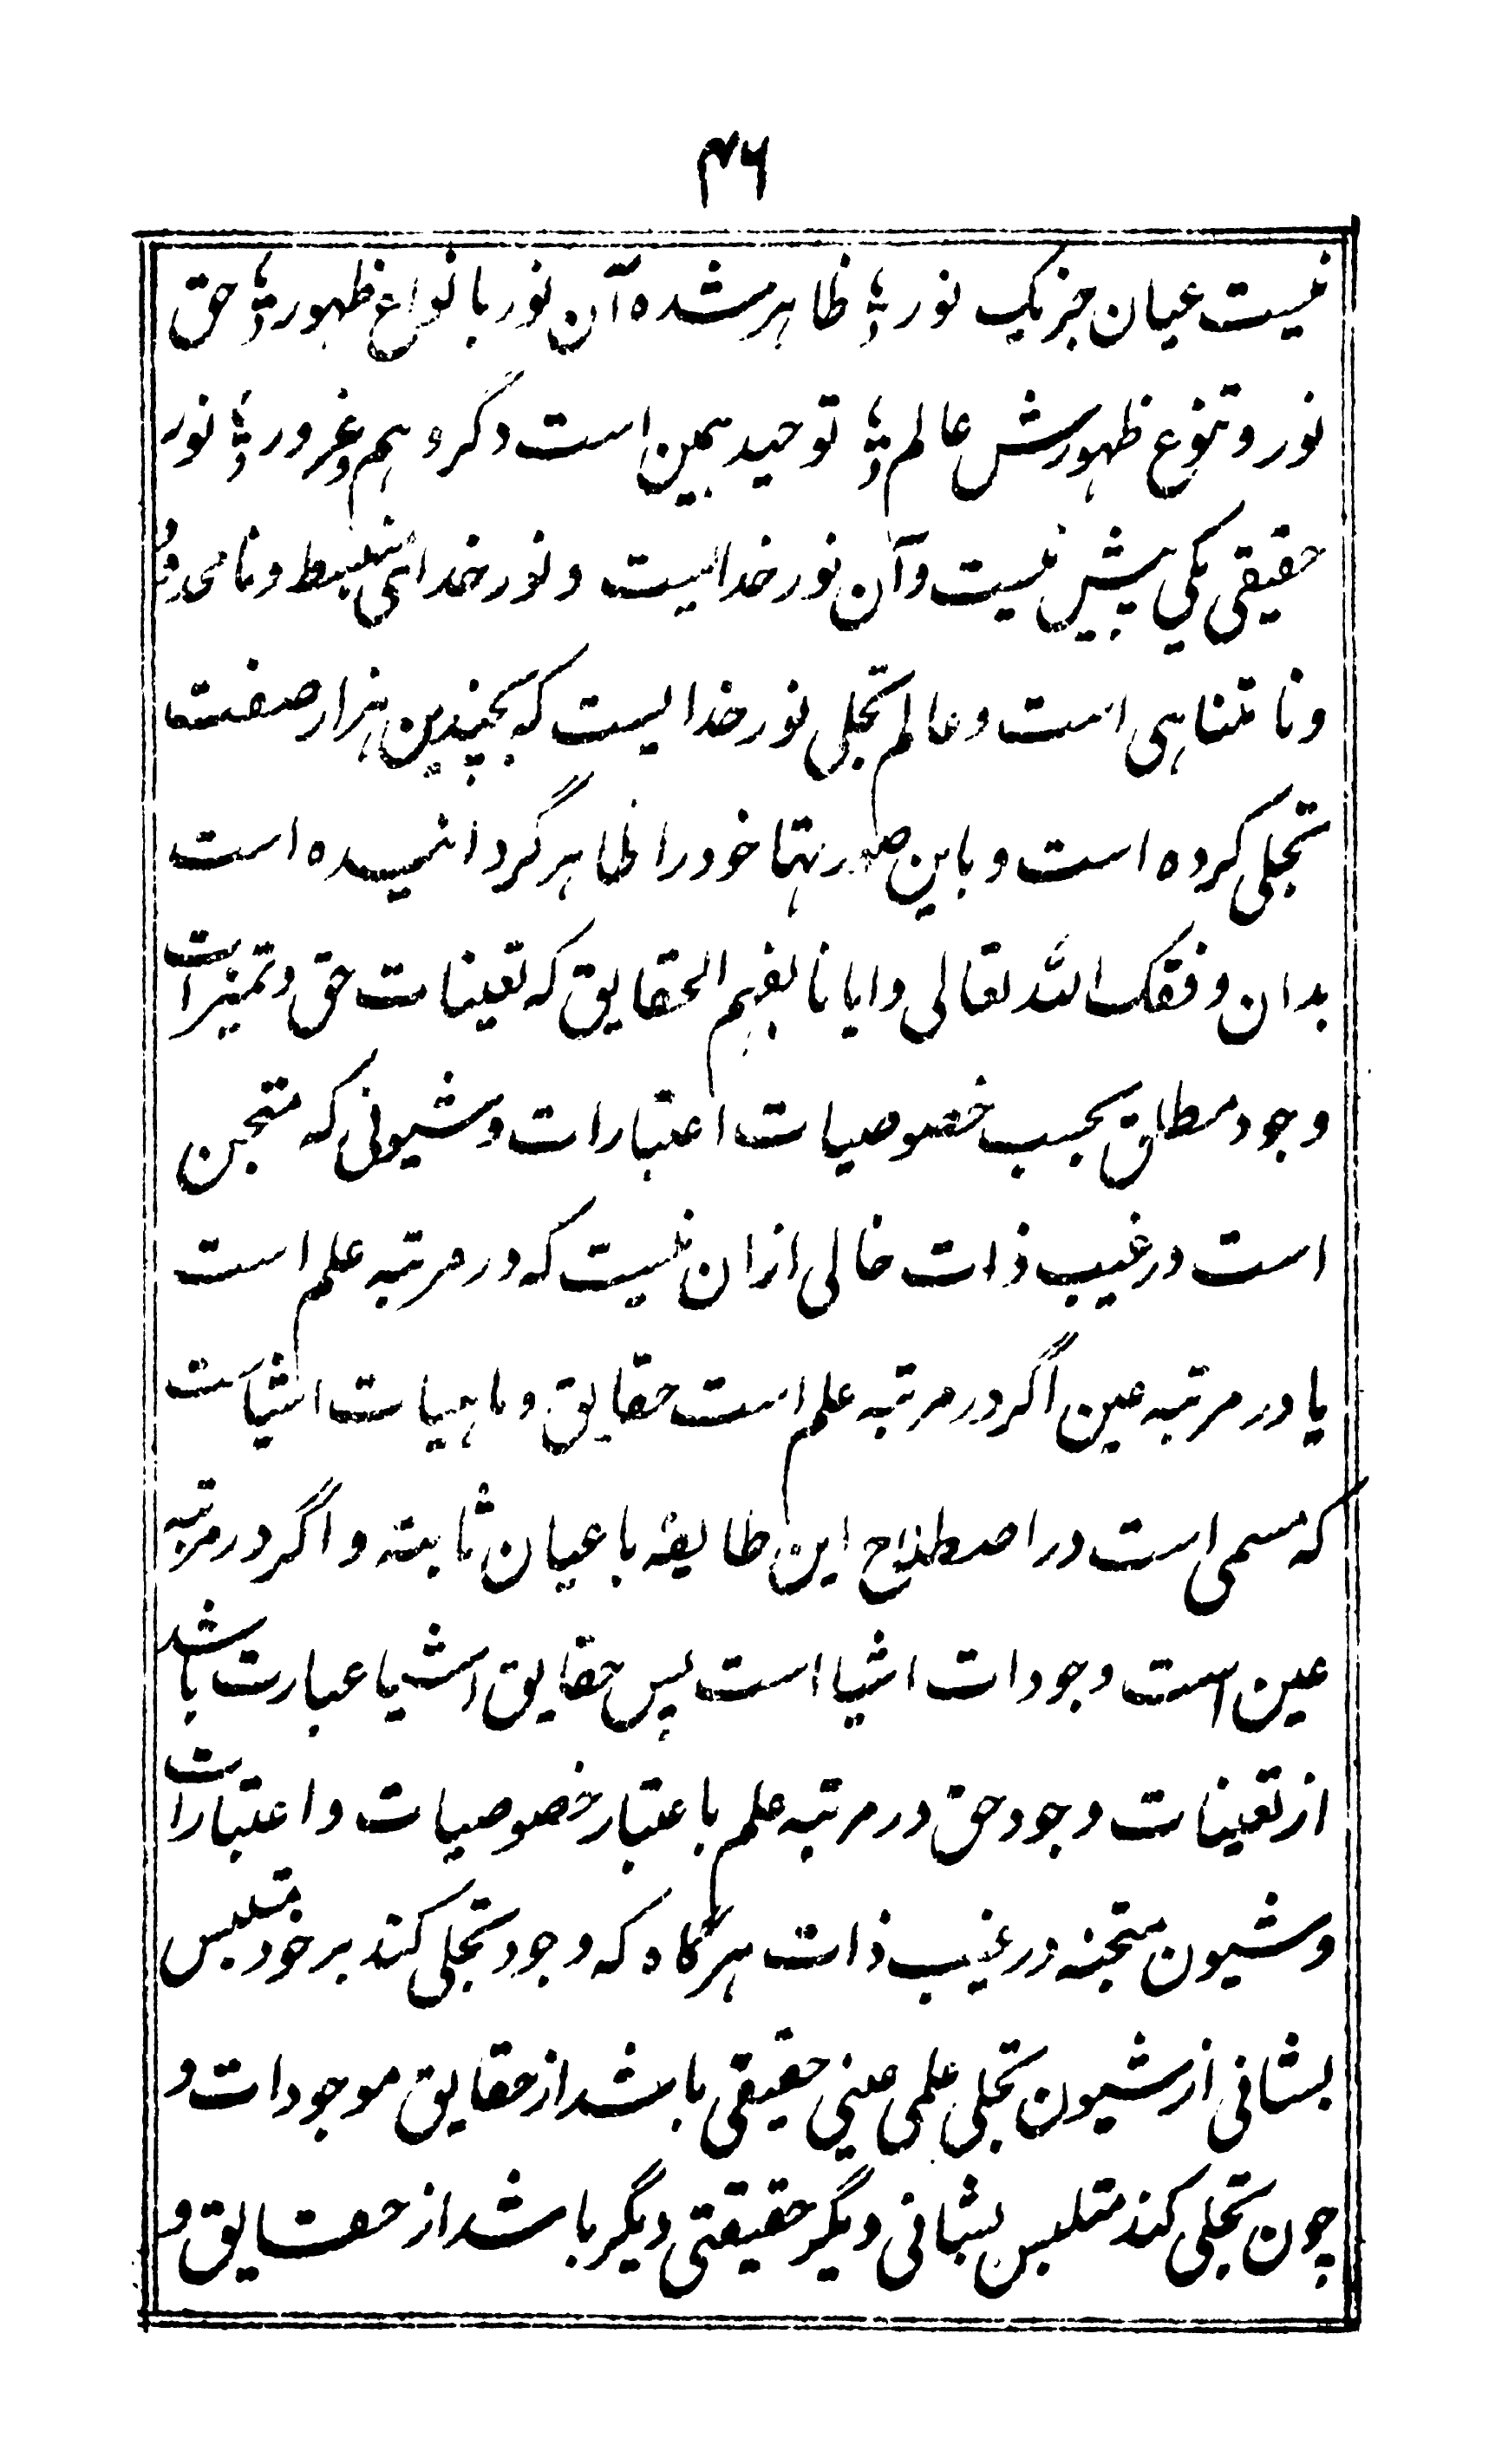 ۴۶
نیست عیان جز یک نور ؛ ظاهر شده آن نور بانواع ظهور ؛ حق
نور و تنوع ظهورش عالم ؛ توحید همین است دگر وهم و غرور ؛ نور
حقیقی یکی بیش نیست و آن نور خدایست و نور خدای منبسط و نامحدود
و نامتناهی است و عالم تجلی نور خدایست که بچندین هزار صفت
تجلی کرده است و باین صورتها خود را ظاهر گردانیده است
بدان وفقک الله تعالی وایانا بفهم الحقایق که تعینات حق و تمیزات
وجود مطلق بحسب خصوصیات اعتبارات و شیونی که متجن
است در غیب ذات خالی ازان نیست که در مرتبه علم است
یا در مرتبه عین اگر در مرتبه علم است حقایق و ماهیات اشیاست
که مسمی است در اصطلاح این طایفه باعیان ثابته و اگر در مرتبه
عین است وجودات اشیا است پس حقایق اشیا عبارت باشد
از تعینات وجود حق در مرتبه علم باعتبار خصوصیات و اعتبارات
و شیون متجنه در غیب ذات هرگاه که وجود تجلی کند بر خود متلبس
بشانی از شیون تجلی علمی عینی حقیقی باشد از حقایق موجودات و
چون تجلی کند متلبس بشانی دیگر حقیقتی دیگر باشد از حقایق و